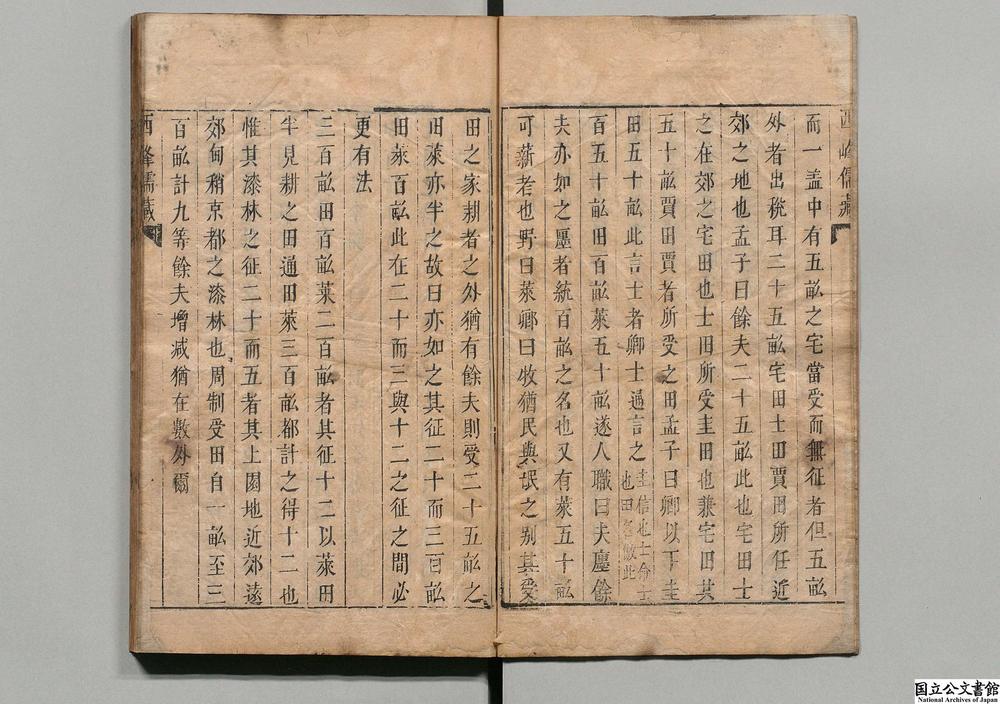 西峰儒藏
而一盖中有五畝之宅當受而無征者但五畝
外者出稅耳二十五畝宅田士田賈田所任近
郊之地也孟子曰餘夫二十五畝此也宅田士
之在郊之宅田也士田所受圭田也兼宅田其
五十畝賈田賈者所受之田孟子曰卿以下圭
田五十畝此言士者卿士通言之圭信也士命士
也田名倣此
百五十畝田百畝萊五十畝遂人職曰夫廛餘
夫亦如之廛者統百畝之名也又有萊五十畝
可薪者也野曰萊鄉曰牧猶民與氓之别其受
田之家耕者之外猶有餘夫則受二十五畝之
田萊亦半之故曰亦如之其征二十而三百畝
田萊百畝此在二十而三與十二之征之間必
更有法
三百畝田百畝萊二百畝者其征十二以萊田
半見耕之田通田萊三百畝都計之得十二也
惟其漆林之征二十而五者其上園地近郊遠
郊甸稍京都之漆林也周制受田自一畝至三
百畝計九等餘夫增减猶在數外爾
西峰儒藏
国立公文書館
National Archives of Japan